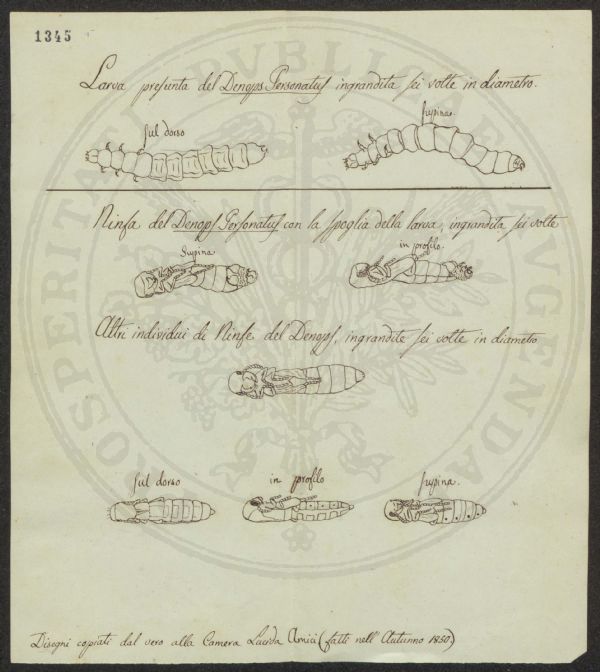 1345
Larva presunta del Denops Personatus ingrandita sei volte in diametro.
sul dorso
supina.
Ninfa del Denops Personatus con la spoglia della larva, ingrandita sei volte
Supina
in profilo.
Altri individui di Ninfe del Denops, ingrandite sei volte in diametro
sul dorso
in profilo
supina.
Disegni copiati dal vero alla Camera Lucida Amici (fatti nell'Autunno 1850.)
PROSPERITATI PVBLICAE AVGENDAE